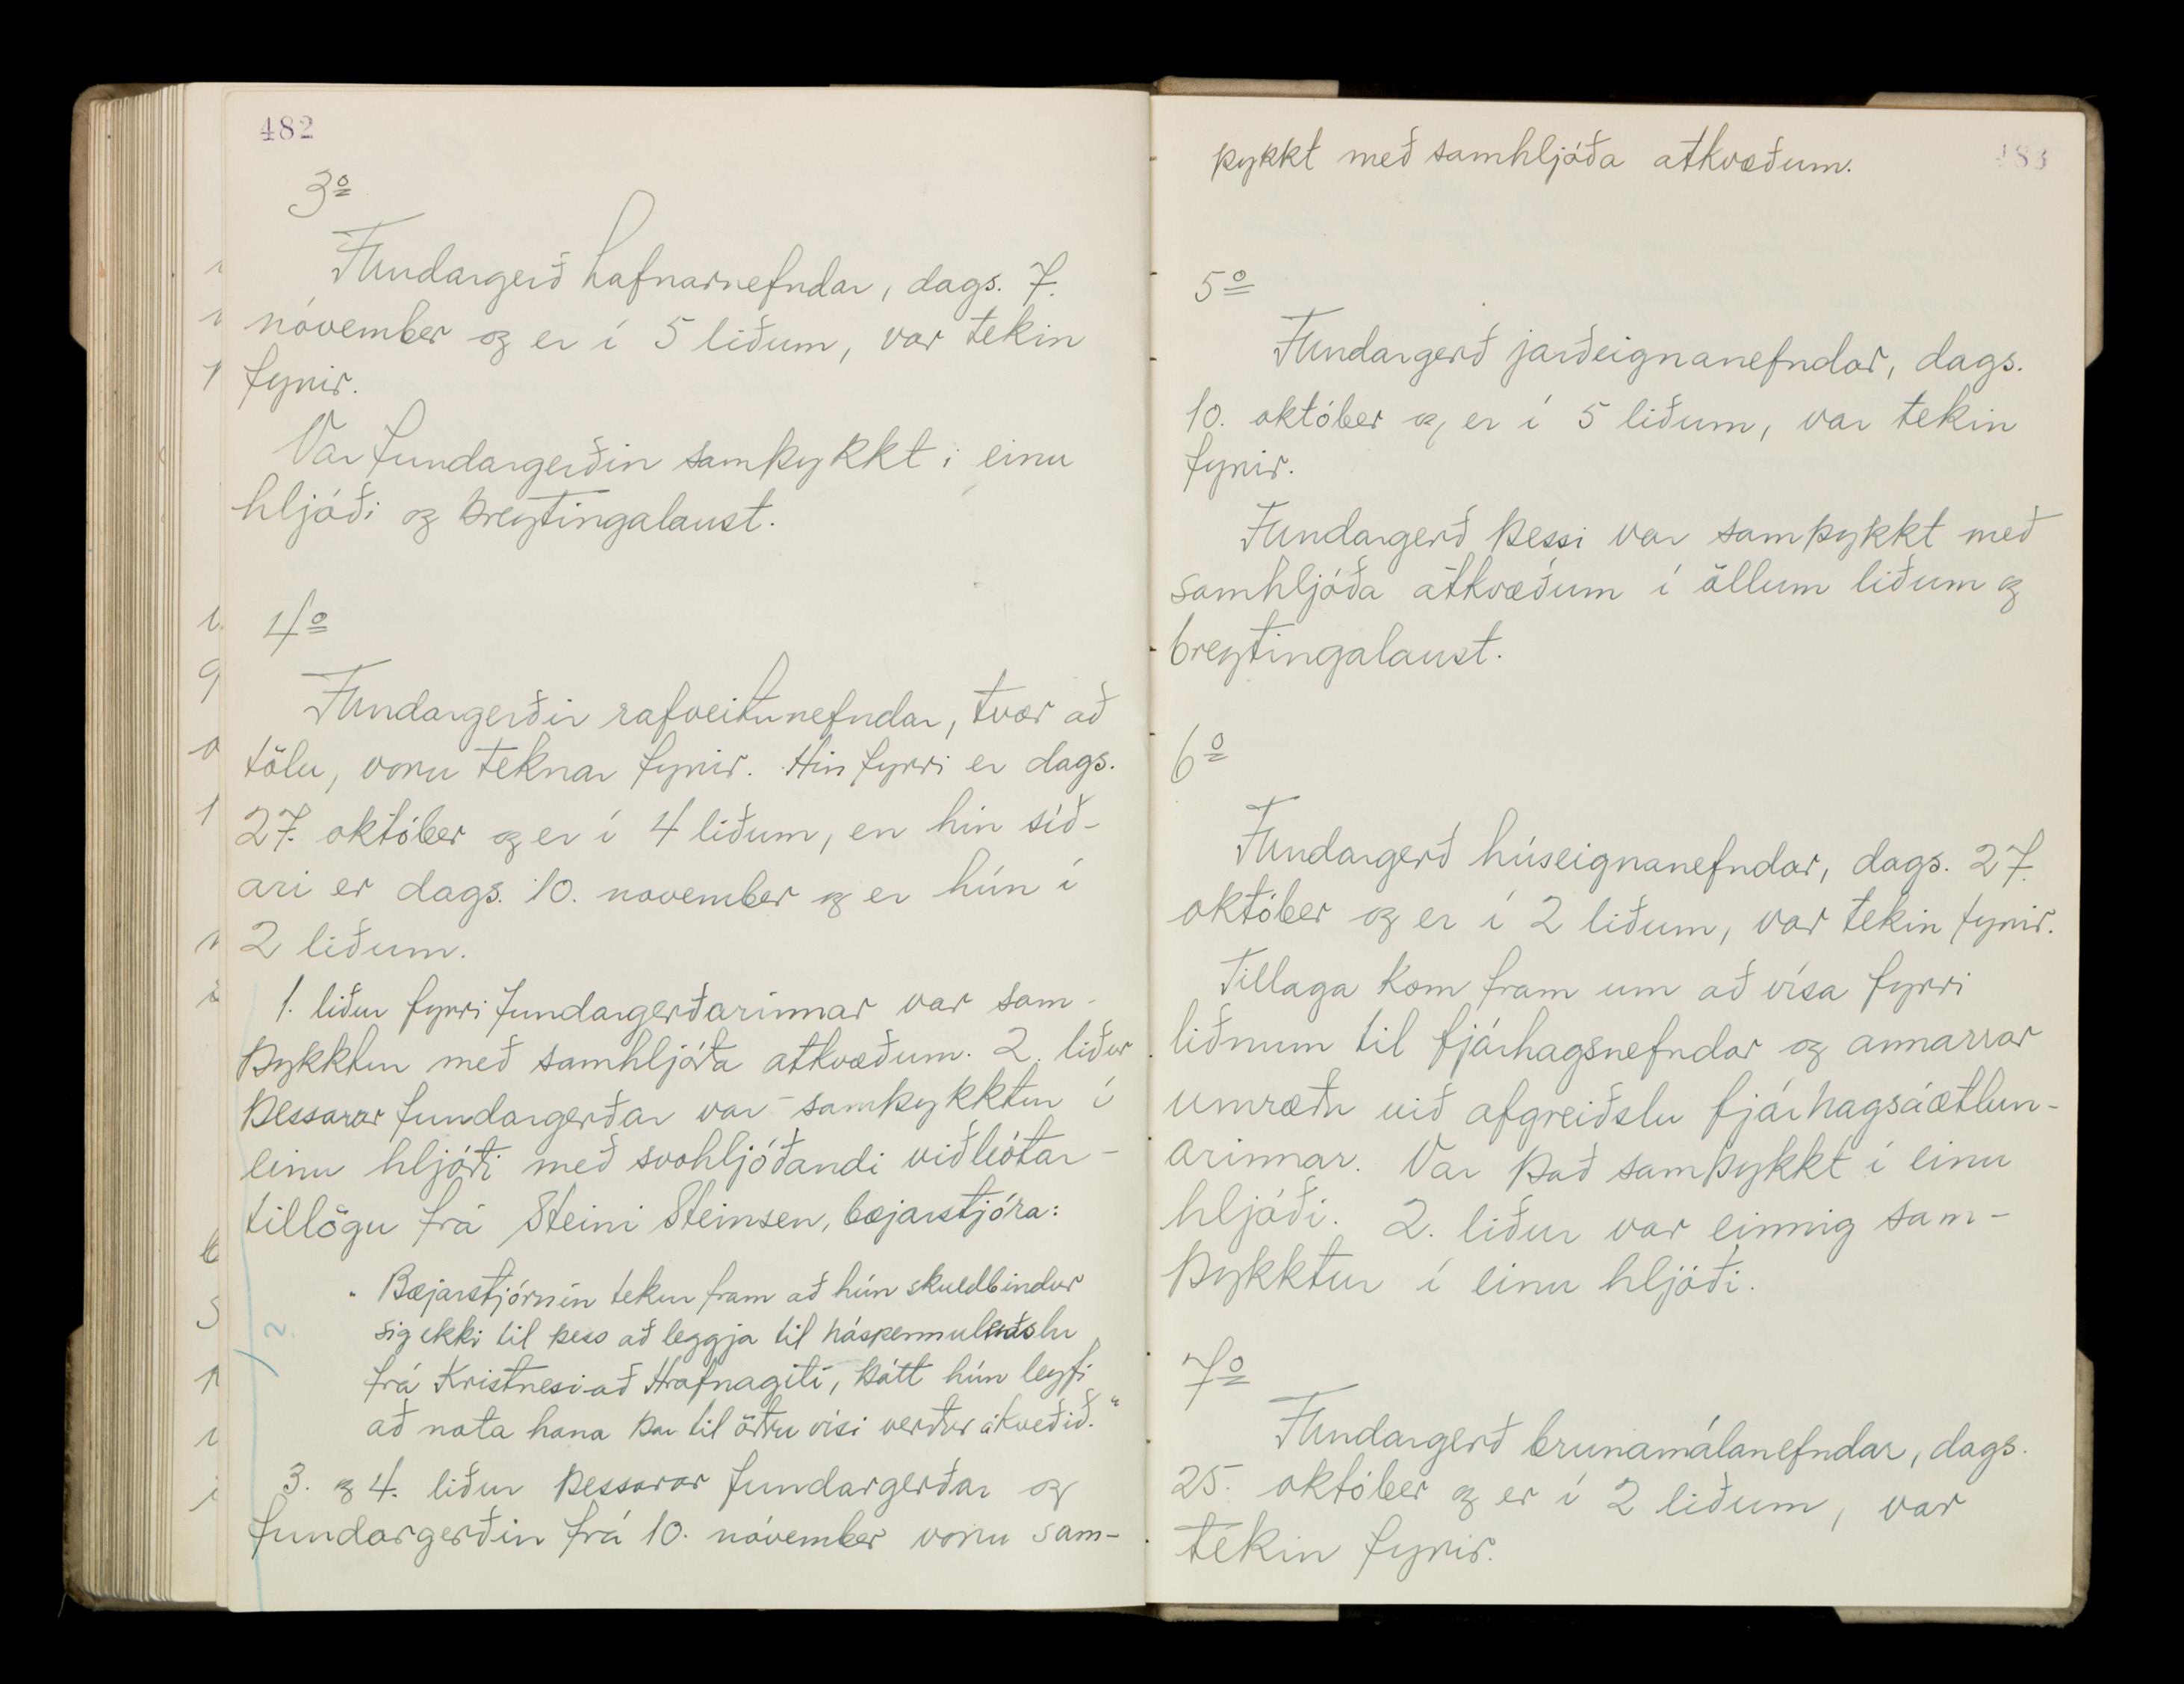 482
3º
Fundargerð hafnarnefndar, dags. 7.
nóvember og er í 5 liðum, var tekin
fyrir.
Var fundargerðin samþykkt í einu
hljóði og breytingalaust.
4º
Fundargerðir rafveitunefndar, tvær að
tölu, voru teknar fyrir. Hin fyrri er dags.
27. október og er í 4 liðum, en hin síð-
ari er dags. 10. november og er hún í
2 liðum.
1. liður fyrri fundargerðarinnar var sam-
þykktur með samhljóða atkvæðum. 2. liður
þessarar fundargerðar var samþykktur í
einu hljóði með svohljóðandi viðbótar-
tillögu frá Steini Steinsen, bæjarstjóra:
„Bæjarstjórnin tekur fram að hún skuldbindur
sig ekki til þess að leggja til háspennuleiðslu
frá Kristnesi að Hrafnagili, þótt hún leyfi
að nota hana þar til öðru vísi verður ákveðið.“
2.
3. og 4. liður þessarar fundargerðar og
fundargerðin frá 10. nóvember voru sam-
483
þykkt með samhljóða atkvæðum.
5º
Fundargerð jarðeignanefndar, dags.
10. október og er í 5 liðum, var tekin
fyrir.
Fundargerð þessi var samþykkt með
samhljóða atkvæðum í öllum liðum og
breytingalaust.
6º
Fundargerð húseignanefndar, dags. 27.
október og er í 2 liðum, var tekin fyrir.
Tillaga kom fram um að vísa fyrri
liðnum til fjárhagsnefndar og annarrar
umræðu við afgreiðslu fjárhagsáætlun-
arinnar. Var það samþykkt í einu
hljóði. 2. liður var einnig sam-
þykktur í einu hljóði.
7º
Fundargerð brunamálanefndar, dags.
25. október og er í 2 liðum, var
tekin fyrir.